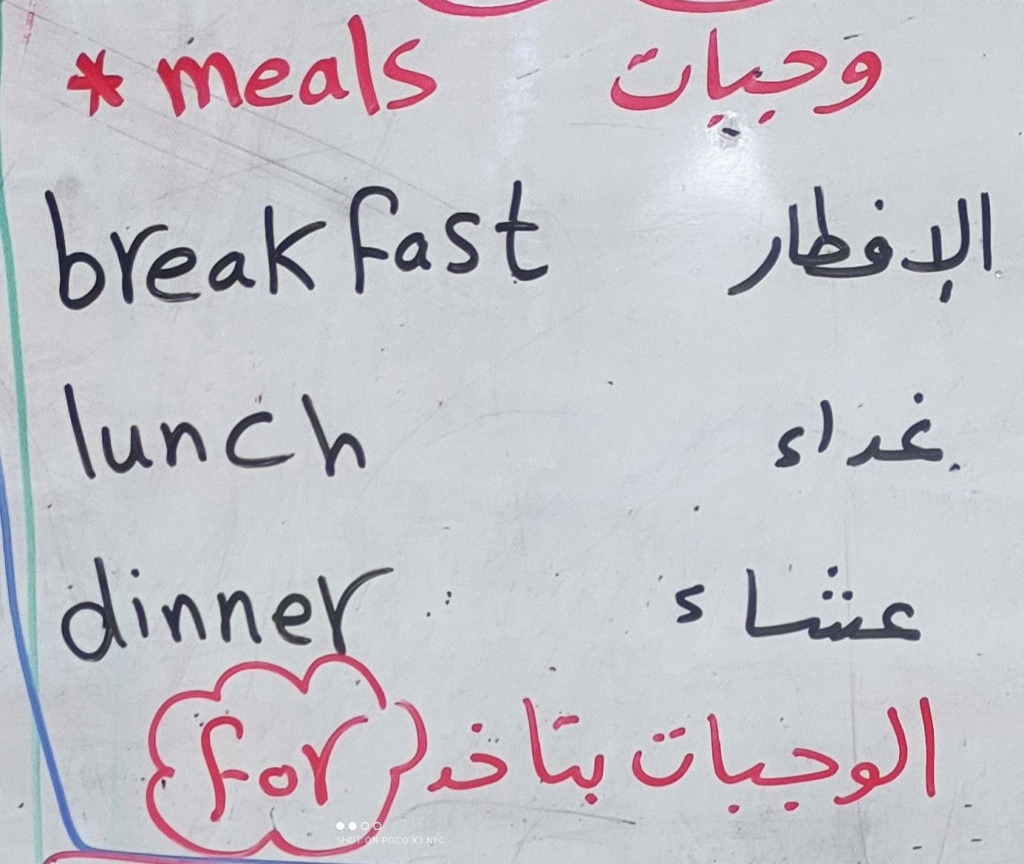 * meals وجبات
breakfast الإفطار
lunch غداء
dinner عشاء
الوجبات بتاخد for
SHOT ON POCO X3 NFC